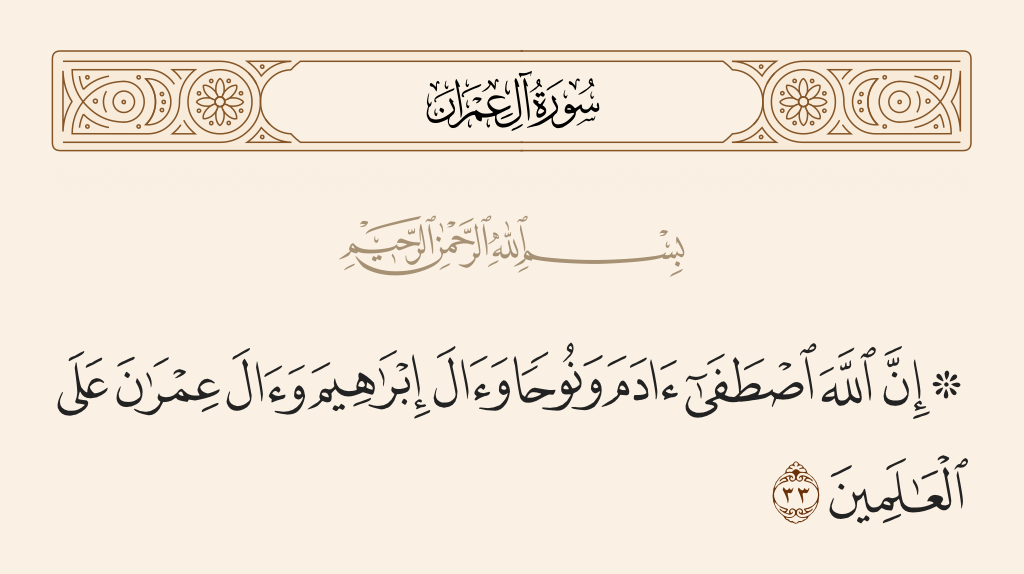 سُورَةُ آلِ عِمْرَانَ
بِسْمِ ٱللَّهِ ٱلرَّحْمَٰنِ ٱلرَّحِيمِ
۞ إِنَّ ٱللَّهَ ٱصْطَفَىٰٓ ءَادَمَ وَنُوحًا وَءَالَ إِبْرَٰهِيمَ وَءَالَ عِمْرَٰنَ عَلَى
ٱلْعَٰلَمِينَ ٣٣